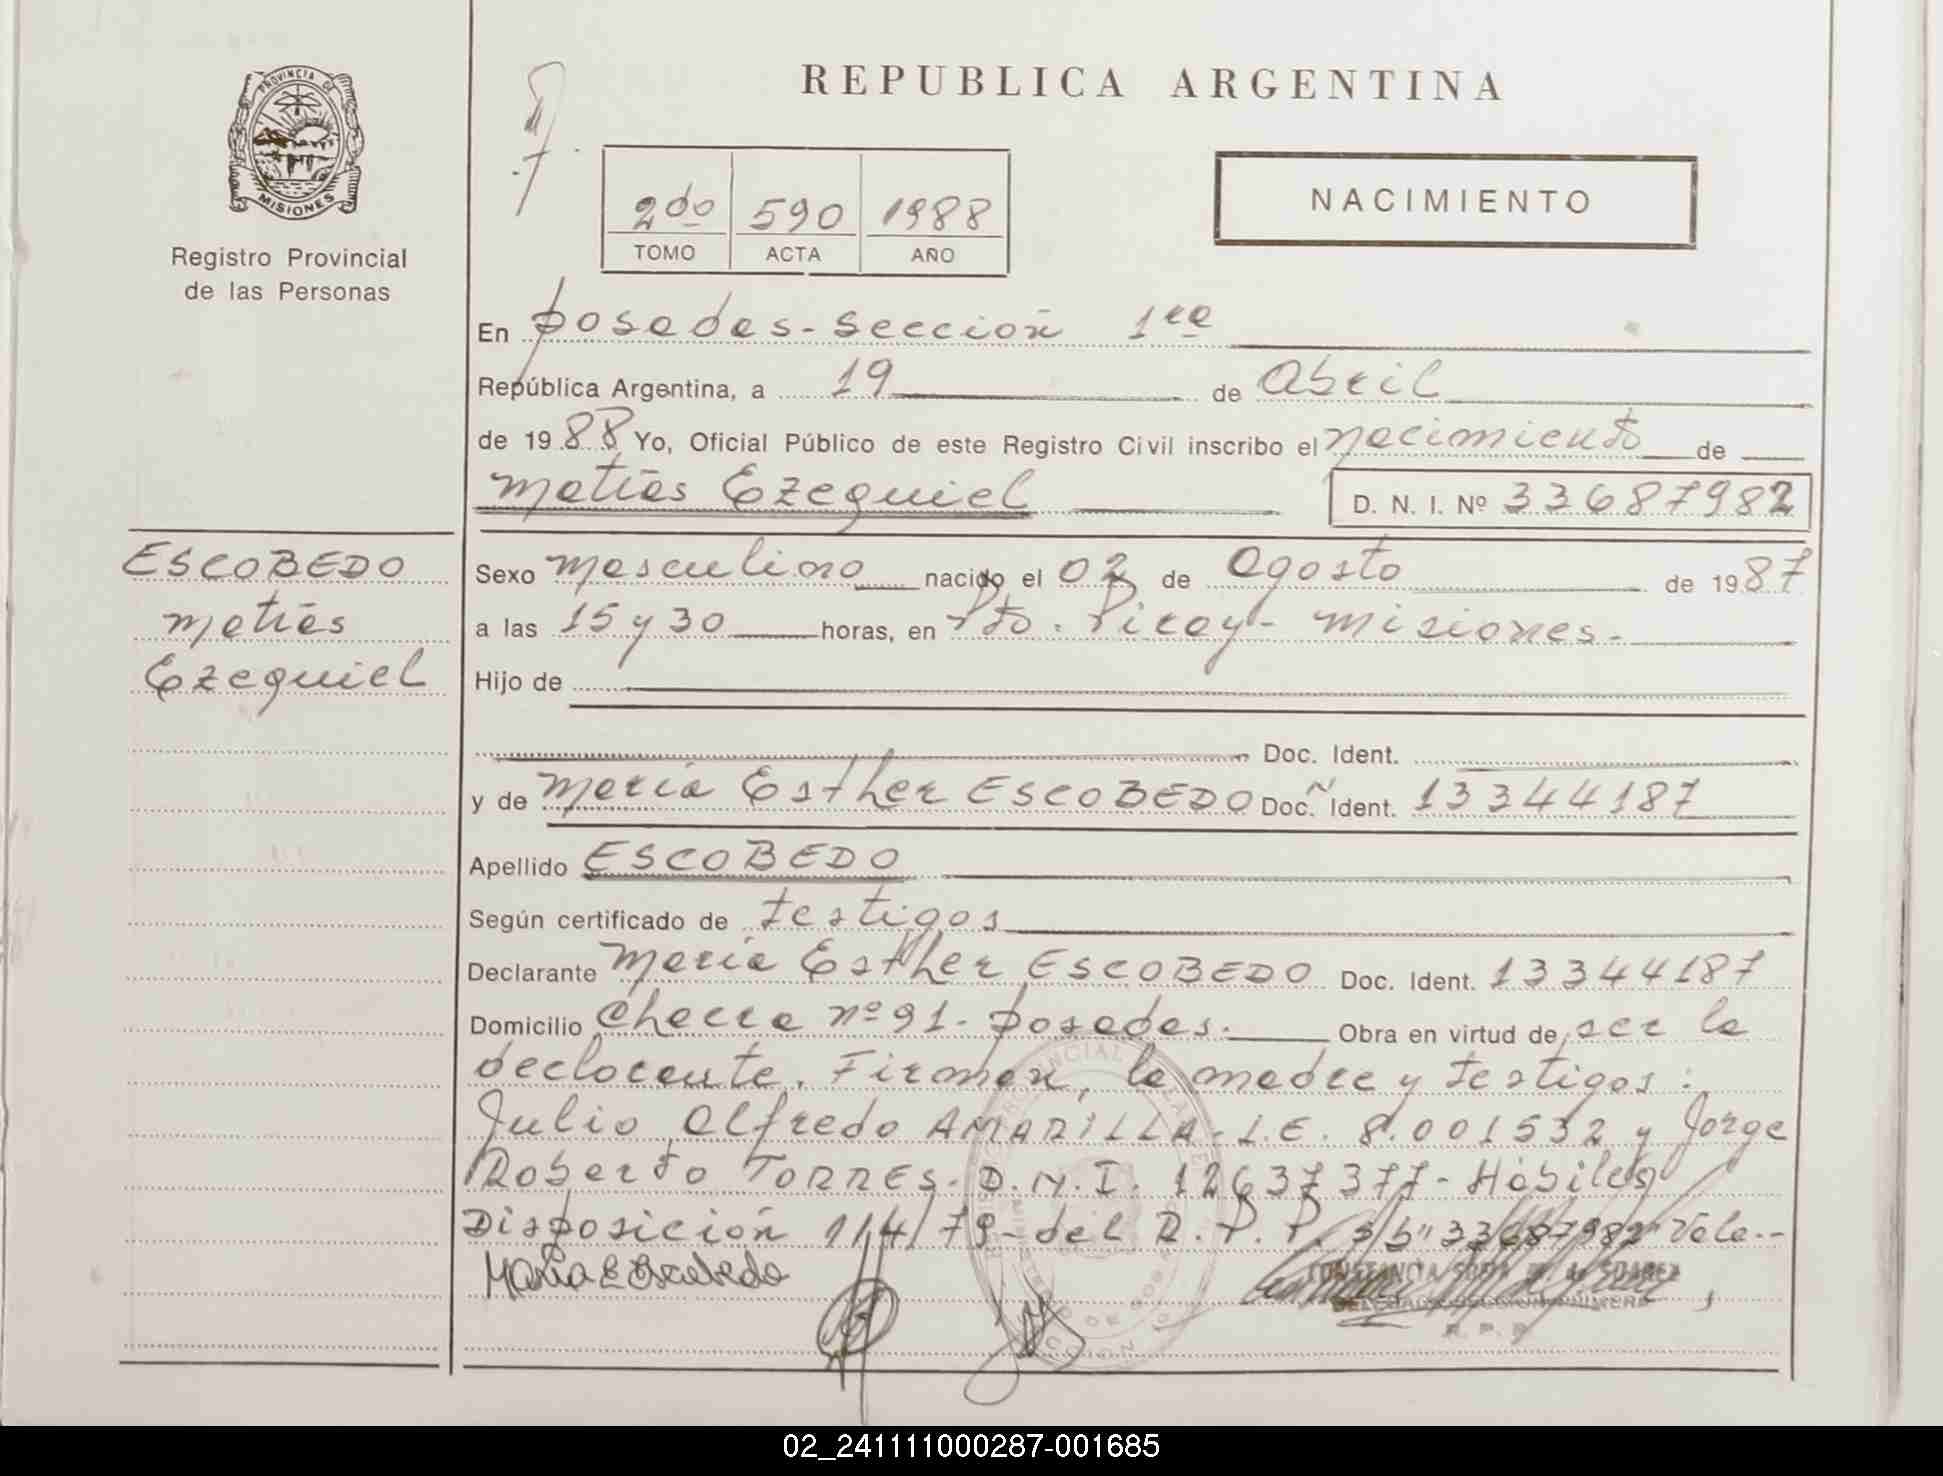 PROVINCIA DE
MISIONES
Registro Provincial
de las Personas
REPUBLICA ARGENTINA
2do 590 1988
TOMO ACTA AÑO
NACIMIENTO
En Posadas-Sección 1ra
República Argentina, a 19 de Abril
de 1988 Yo, Oficial Público de este Registro Civil inscribo el nacimiento de
Matías Ezequiel D. N. I. Nº 33687982
ESCOBEDO
Matías
Ezequiel
Sexo Masculino nacido el 02 de Agosto de 1987
a las 15 y 30 horas, en Pto. Piray- Misiones.
Hijo de
Doc. Ident.
y de María Esther ESCOBEDO Doc. Ident. 13344187
Apellido ESCOBEDO
Según certificado de testigos
Declarante María Esther ESCOBEDO Doc. Ident. 13344187
Domicilio Chacra nº 91. Posadas. Obra en virtud de ser la
declarante. Firman, la madre y testigos:
Julio Alfredo AMARILLA-L.E. 8.001532 y Jorge
Roberto TORRES. D.N.I. 12637377- Hábiles
Disposición 114/79-del R.P.P. s/b"33687982" Vale.-
María E Escobedo
CONSTANCIA SOSA DE SUAREZ
DELEGADA SECCION PRIMERA
R. P. P.
02_241111000287-001685